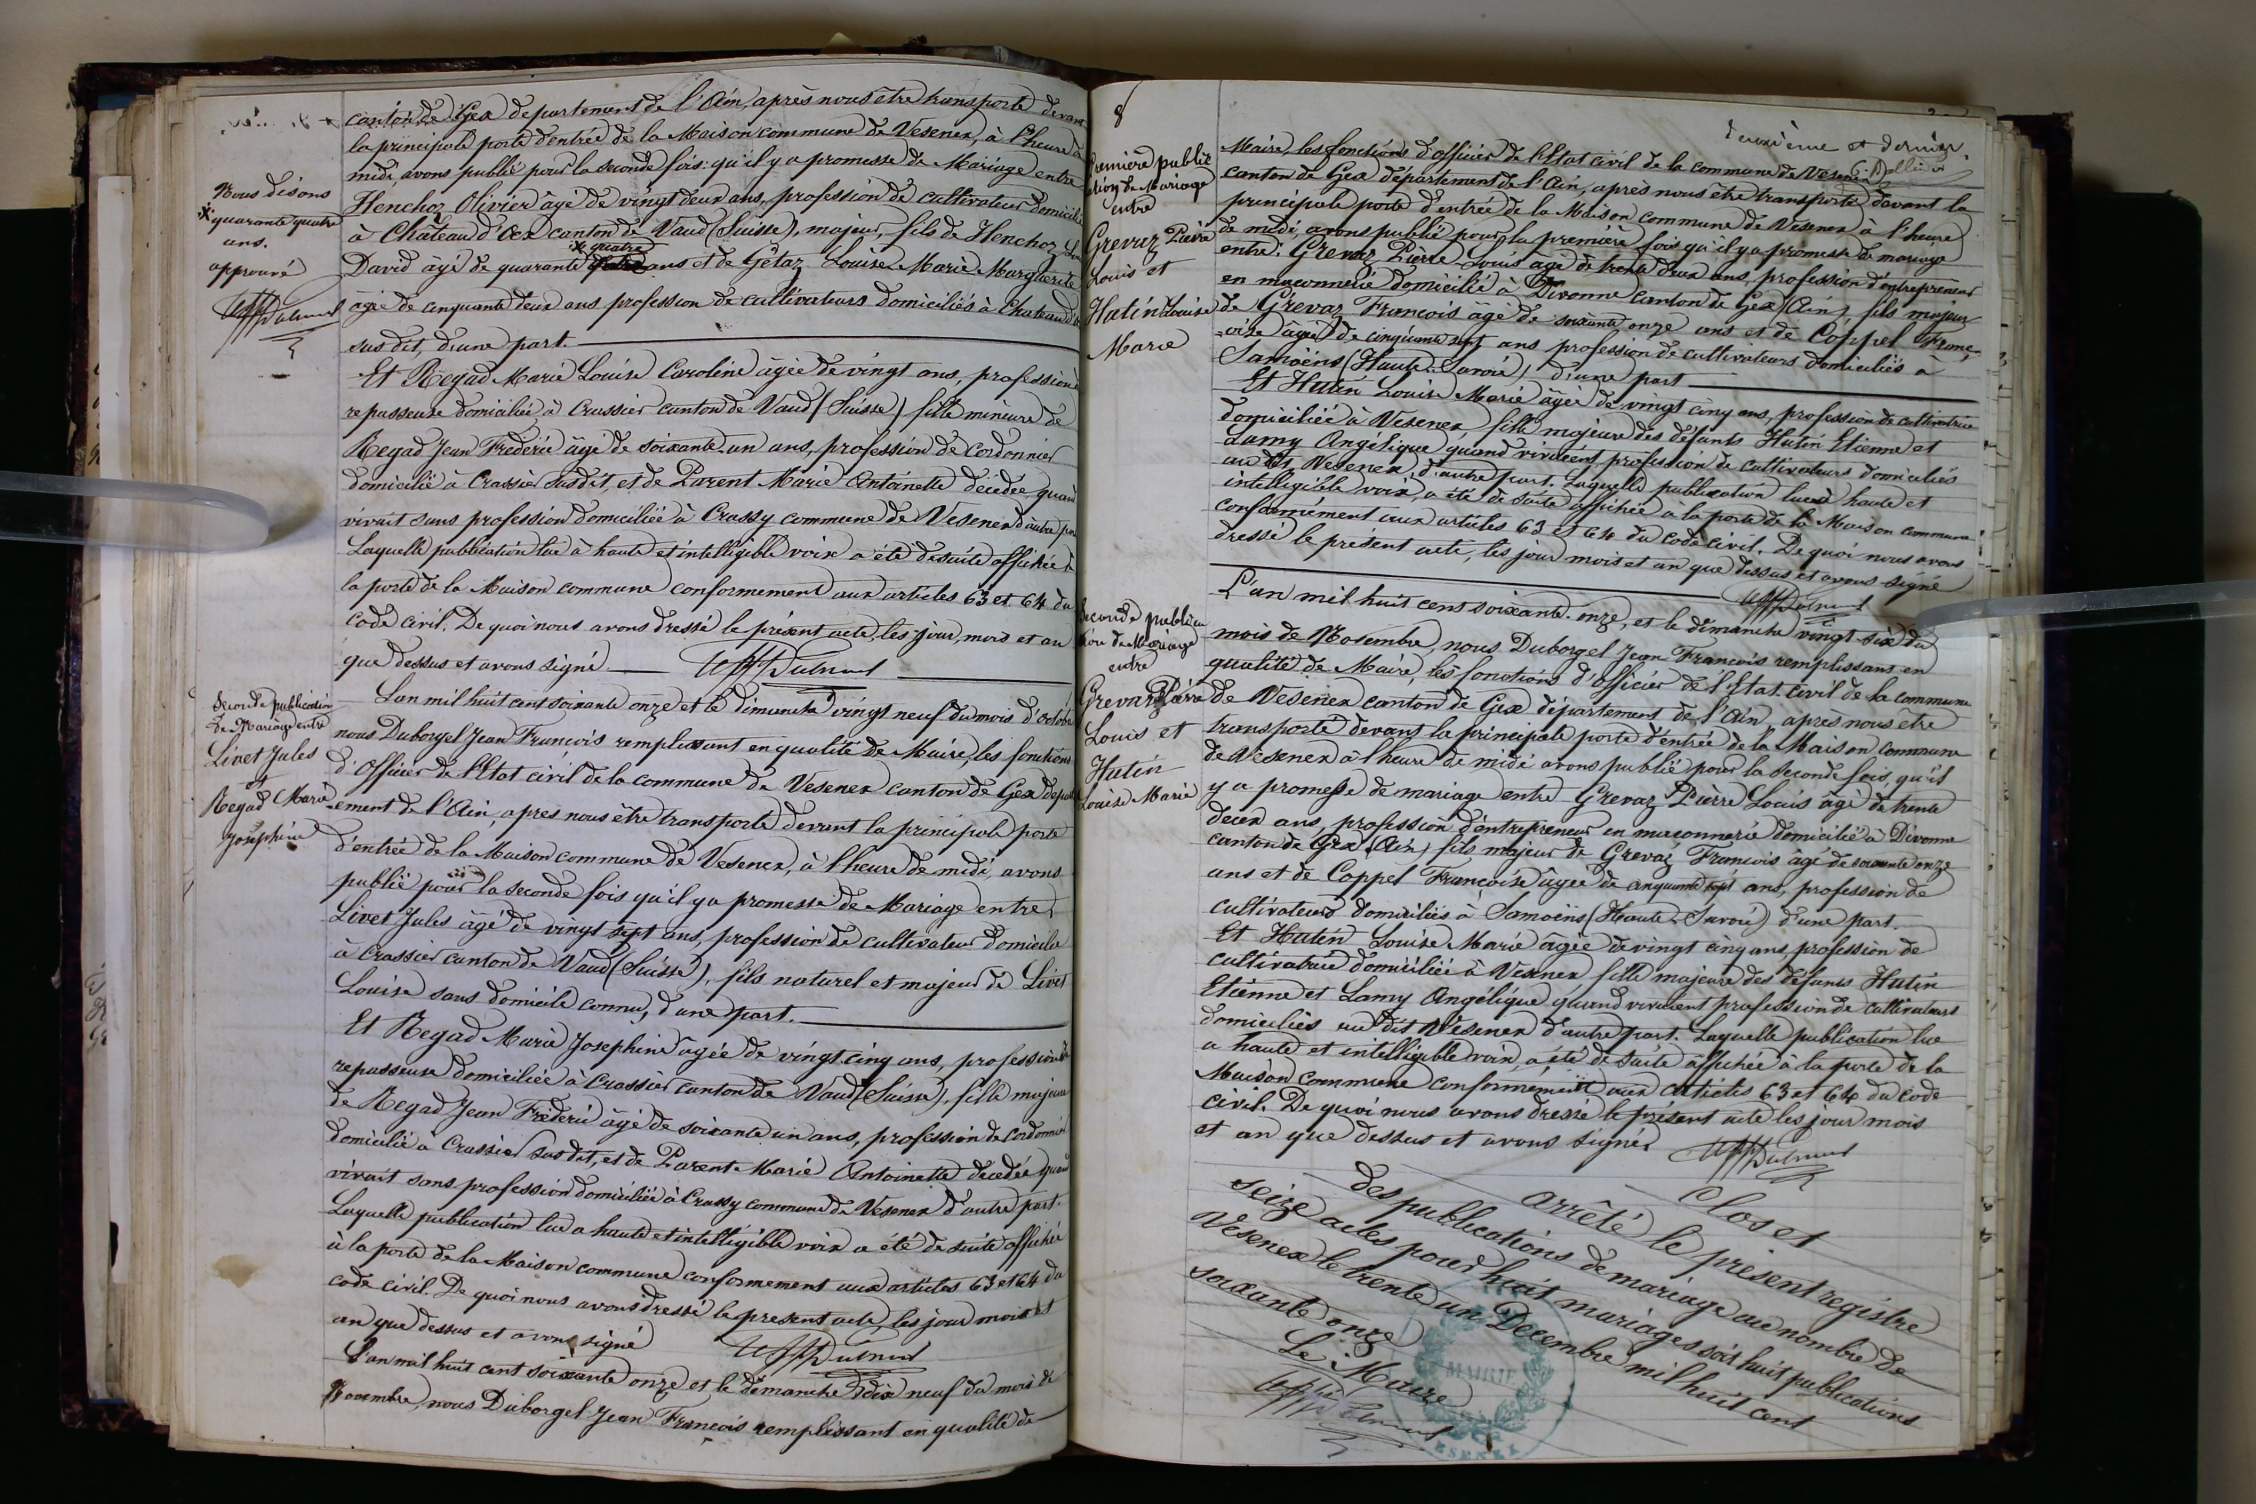 canton de Gex departement de l'Ain, après nous être transporté devant
la principale porte d'entrée de la Maison commune de Vesenex, à l'heure de
midi, avons publié pour la seconde fois: qu'il y a promesse de Mariage entre
Henchoz Olivier âgé de vingt deux ans, profession de cultivateur domicilié
à Château d'Oex canton de Vaud (Suisse), majeur, fils de Henchoz
David âgé de quarante quatre ans et de Gétaz Louise Marie Marguerite
âgée de cinquante deux ans profession de cultivateurs domiciliés à Chateau d'
sus dit, d'une part.
Nous disons
quarante quatre
ans.
approuvé
Et Regad Marie Louise Caroline âgée de vingt ans, profession
repasseuse domiciliée à Crassier canton de Vaud (Suisse) fille mineure de
Regad Jean Frédéric âgé de soixante-un ans, profession de Cordonnier
domicilié à Crassier susdit, et de Parent Marie Antoinette décédée quand
vivait sans profession domiciliée à Crassy commune de Vesenex d'autre part
Laquelle publication lue à haute et intelligible voix a été de suite affichée à
la porte de la Maison commune conformement aux articles 63 et 64 du
code civil. De quoi nous avons dressé le présent acte, les jour, mois et an
que dessus et avons signé
Seconde publication
de Mariage entre
Livet Jules
et
Regad Marie
Joséphine
L'an mil huit cent soixante onze et le dimanche vingt neuf du mois d'octobre
nous Duborgel Jean François remplissant en qualité de Maire, les fonctions
d'Officier de l'Etat civil de la commune de Vesenex canton de Gex depart
ement de l'Ain, apres nous être transporté devant la principale porte
d'entrée de la Maison commune de Vesenex, à l'heure de midi, avons
publié pour la seconde fois qu'il y a promesse de Mariage entre
Livet Jules âgé de vingt sept ans, profession de cultivateur domicilié
à Crassier canton de Vaud (Suisse), fils naturel et majeur de Livet
Louise sans domicile connu, d'une part.
Et Regad Marie Josephine âgée de vingt cinq ans, profession de
repasseuse domiciliée à Crassier canton de Vaud (Suisse), fille majeure
de Regad Jean Frederic âgé de soixante un ans, profession de Cordonnier
domicilié à Crassier susdit, et de Parent Marie Antoinette decedée quand
vivait sans profession domiciliée à Crassy commune de Vesenex d'autre part.
Laquelle publication lue a haute et intelligible voix a été de suite affichée
à la porte de la Maison commune conformement aux articles 63 et 64 du
code civil. De quoi nous avons dressé le present acte, les jour mois et
an que dessus et avons signé
L'an mil huit cent soixante onze et le dimanche dix neuf du mois de
Novembre, nous Duborgel Jean François remplissant en qualité de
8
deuxième et dernier.
Première public
ation de Mariage
entre
Grevaz Pierre
Louis et
Hutin Louise
Marie
Maire, les fonctions d'officier de l'Etat civil de la commune de Vesenex
canton de Gex département de l'Ain, apres nous être transporté devant la
principale porte d'entrée de la Maison commune de Vesenex à l'heure
de midi avons publié pour la première fois qu'il y a promesse de mariage
entre: Grevaz Pierre Louis âgé de trente deux ans, profession d'entrepreneur
en maçonnerie domicilié à Divonne canton de Gex (Ain) fils majeur
de Grevaz François âgé de soixante onze ans et de Coppel Franç
-oise âgée de cinquante sept ans profession de cultivateurs domiciliés à
Samoëns (Haute-Savoie) d'une part
Et Hutin Louise Marie âgée de vingt cinq ans, profession de cultivatrice
domiciliée à Vesenex fille majeure des défunts Hutin Etienne et
Lamy Angélique quand vivaient profession de cultivateurs domiciliés
au dit Vesenex, d'autre part. Laquelle publication lue a haute et
intelligible voix, a été de suite affichée a la porte de la Maison commune
conformément aux articles 63 et 64 du code civil. De quoi nous avons
dressé le présent acte, les jour mois et an que dessus et avons signé
Seconde publica
tion de Mariage
entre
Grevaz Pierre
Louis et
Hutin
Louise Marie
L'an mil huit cent soixante-onze, et le dimanche vingt-six du
mois de Novembre, nous Duborgel Jean François remplissant en
qualité de Maire, les fonctions d'officier de l'Etat civil de la commune
de Vesenex canton de Gex département de l'Ain, après nous etre
transporté devant la principale porte d'entrée de la Maison commune
de Vesenex à l'heure de midi avons publié pour la seconde fois, qu'il
y a promesse de mariage entre Grevaz Pierre Louis âgé de trente
deux ans, profession d'entrepreneur en maconnerie domicilié à Divonne
canton de Gex (Ain) fils majeur de Grevaz François âgé de soixante onze
ans et de Coppel Françoise âgée de cinquante sept ans, profession de
cultivateurs domiciliés à Samoëns (Haute-Savoie) d'une part.
Et Hutin Louise Marie âgée de vingt cinq ans, profession de
cultivatrice domiciliée à Vesenex fille majeure des defunts Hutin
Etienne et Lamy Angélique quand vivaient profession de cultivateurs
domiciliés au dit Vesenex d'autre part. Laquelle publication lue
a haute et intelligible voix, a été de suite affichée à la porte de la
Maison commune conformément aux articles 63 et 64 du code
civil. De quoi nous avons dressé le présent acte les jour mois
et an que dessus et avons signé
Clos et
arrêté le présent registre
des publications de mariage au nombre de
seize actes pour huit mariages soit huit publications
Vesenex le trente un Décembre mil huit cent
soixante onze
Le Maire
MAIRIE
VESENEX